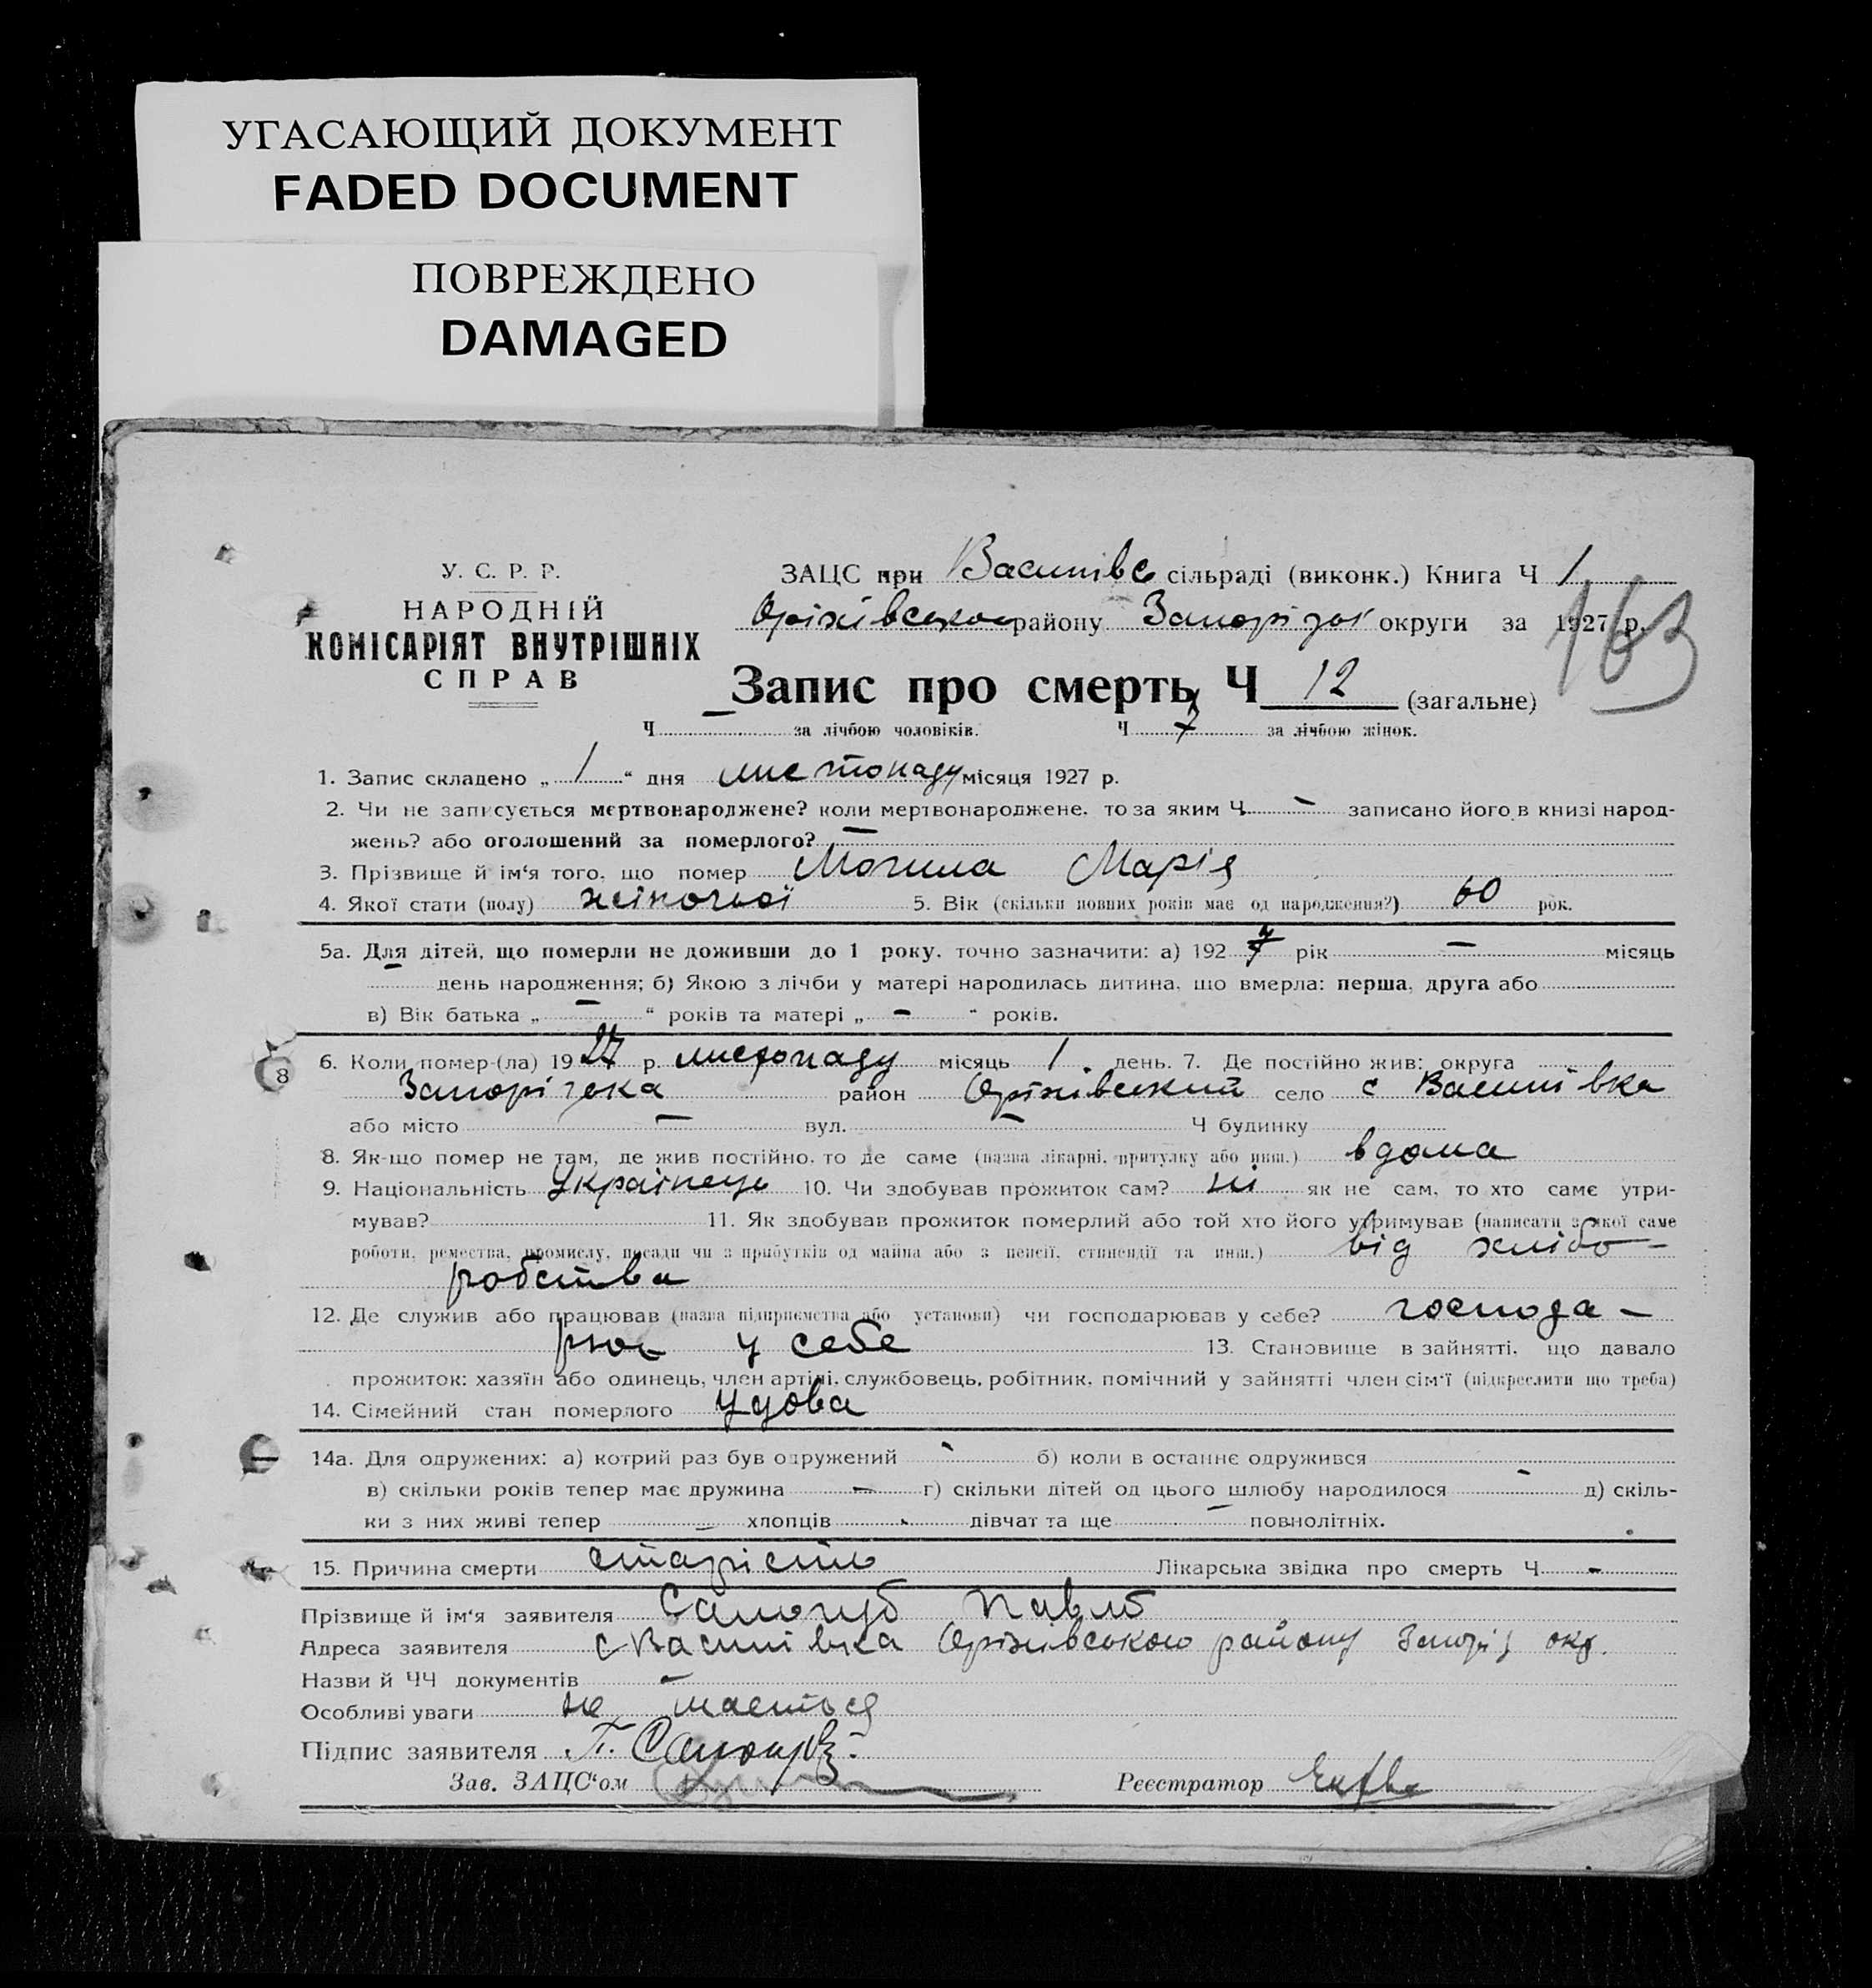 УГАСАЮЩИЙ ДОКУМЕНТ
FADED DOCUMENT
ПОВРЕЖДЕНО
DAMAGED
У. С. Р. Р.
НАРОДНІЙ
КОМІСАРІЯТ ВНУТРІШНІХ
СПРАВ
ЗАЦС при Василівс сільраді (виконк.) Книга Ч 1
Оріхівського району Запорізької округи за 1927 р.
163
Запис про смерть Ч 12 (загальне)
Ч — за лічбою чоловіків. Ч 7 за лічбою жінок.
1. Запис складено „ 1 “ дня листопаду місяця 1927 р.
2. Чи не записується мертвонароджене? коли мертвонароджене, то за яким Ч — записано його в книзі народ-
жень? або оголошений за померлого? —
3. Прізвище й ім‘я того, що помер Могила Марія
4. Якої стати (полу) жіночої 5. Вік (скільки повних років має од народження?) 60 рок.
5а. Для дітей, що померли не доживши до 1 року, точно зазначити: а) 192 7 рік — місяць
— день народження; б) Якою з лічби у матері народилась дитина, що вмерла: перша, друга або
в) Вік батька „ — “ років та матері „ — “ років.
6. Коли помер-(ла) 1927 р. листопаду місяць 1 день. 7. Де постійно жив: округа
Запорізька район Оріхівський село с Василівка
або місто — вул. — Ч будинку
8
8. Як-що помер не там, де жив постійно, то де саме (назва лікарні, притулку або инш.) вдома
9. Національність Українець 10. Чи здобував прожиток сам? ні як не сам, то хто саме утри-
мував? 11. Як здобував прожиток померлий або той хто його утримував (написати з якої саме
роботи, ремества, промислу, посади чи з прибутків од майна або з пенсії, стипендії та инш.) від хлібо-
робства
12. Де служив або працював (назва підприємства або установи) чи господарював у себе? господа-
рюв у себе 13. Становище в зайнятті, що давало
прожиток: хазяїн або одинець, член артілі, службовець, робітник, помічний у зайнятті член сім‘ї (підкреслити що треба)
14. Сімейний стан померлого Удова
14а. Для одружених: а) котрий раз був одружений - б) коли в останнє одружився
в) скільки років тепер має дружина — г) скільки дітей од цього шлюбу народилося — д) скіль-
ки з них живі тепер — хлопців - дівчат та ще — повнолітніх.
15. Причина смерти старість Лікарська звідка про смерть Ч -
Прізвище й ім‘я заявителя Самогуб Павло
Адреса заявителя с Василівка Оріхівського району Запоріз окр.
Назви й ЧЧ документів —
Особливі уваги не мається
Підпис заявителя П. Самогуб
Зав. ЗАЦС‘ом
Реєстратор